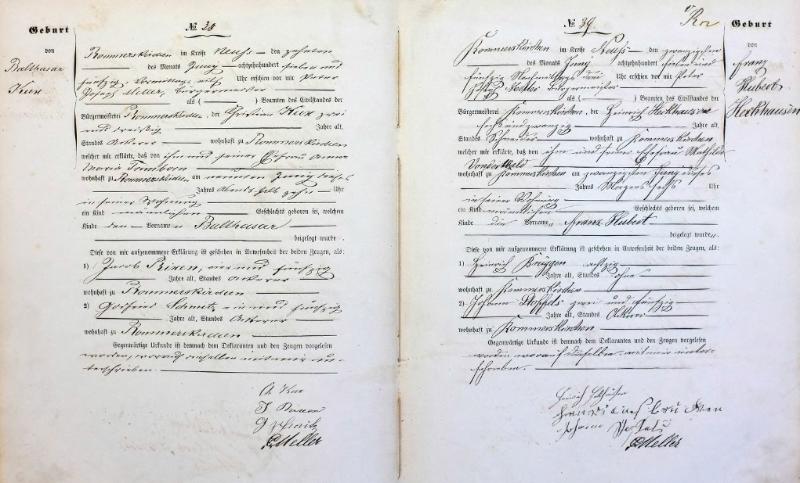 Geburt
von
Balthasar
Kux
№
Rommerskirchen im Kreise Neuß den zehnten
des Monats Juny achtzehnhundert sieben und
fünfzig, Vormittags Uhr erschien vor mir Peter
Joseph Meller, Bürgermeister
als ( ) Beamten des Civilstandes der
Bürgermeisterei Rommerskirchen, der Christian Kux zwei
und dreißig Jahre alt,
Standes Ackerer wohnhaft zu Rommerskirchen
welcher mir erklärte, daß von ihm und seiner Ehefrau Anna
Maria
wohnhaft zu Rommerskirchen, am neunten Juny dieses
Jahres Abends halb zehn Uhr
in seiner Wohnung
ein Kind männlichen Geschlechts geboren sei, welchem
Kinde den Vornamen Balthasar
beigelegt wurde.
Diese von mir aufgenommene Erklärung ist geschehen in Anwesenheit der beiden Zeugen, als:
1) Jacob und fünfzig
Jahre alt, Standes Ackerer
wohnhaft zu Rommerskirchen
2) und fünfzig
Jahre alt, Standes Ackerer
wohnhaft zu Rommerskirchen
Gegenwärtige Urkunde ist demnach dem Deklaranten und den Zeugen vorgelesen
worden, worauf dieselben mit mir un-
terschrieben.
Meller
№ 39
Geburt
von
Franz
Hubert
Hockhausen
Rommerskirchen im Kreise Neuß den zwanzigsten
des Monats Juny achtzehnhundert sieben und
fünfzig Nachmittags Uhr erschien vor mir Peter
Joseph Meller Bürgermeister
als ( ) Beamten des Civilstandes der
Bürgermeisterei Rommerskirchen, der Heinrich Hockhausen
sechs und zwanzig Jahre alt,
Standes Schneider wohnhaft zu Rommerskirchen
welcher mir erklärte, daß von ihm und seiner Ehefrau Mathilde
wohnhaft zu Rommerskirchen am zwanzigsten Juny dieses
Jahres Morgens sechs Uhr
in seiner Wohnung
ein Kind männlichen Geschlechts geboren sei, welchem
Kinde die Vornamen Franz Hubert
beigelegt wurde.
Diese von mir aufgenommene Erklärung ist geschehen in Anwesenheit der beiden Zeugen, als:
1) Heinrich Brüggen achtzig
Jahre alt, Standes ohne
wohnhaft zu Rommerskirchen
2) Johann zwei und fünfzig
Jahre alt, Standes Ackerer
wohnhaft zu Rommerskirchen
Gegenwärtige Urkunde ist demnach dem Deklaranten und den Zeugen vorgelesen
worden worauf dieselben mit mir unter-
schrieben.
Meller